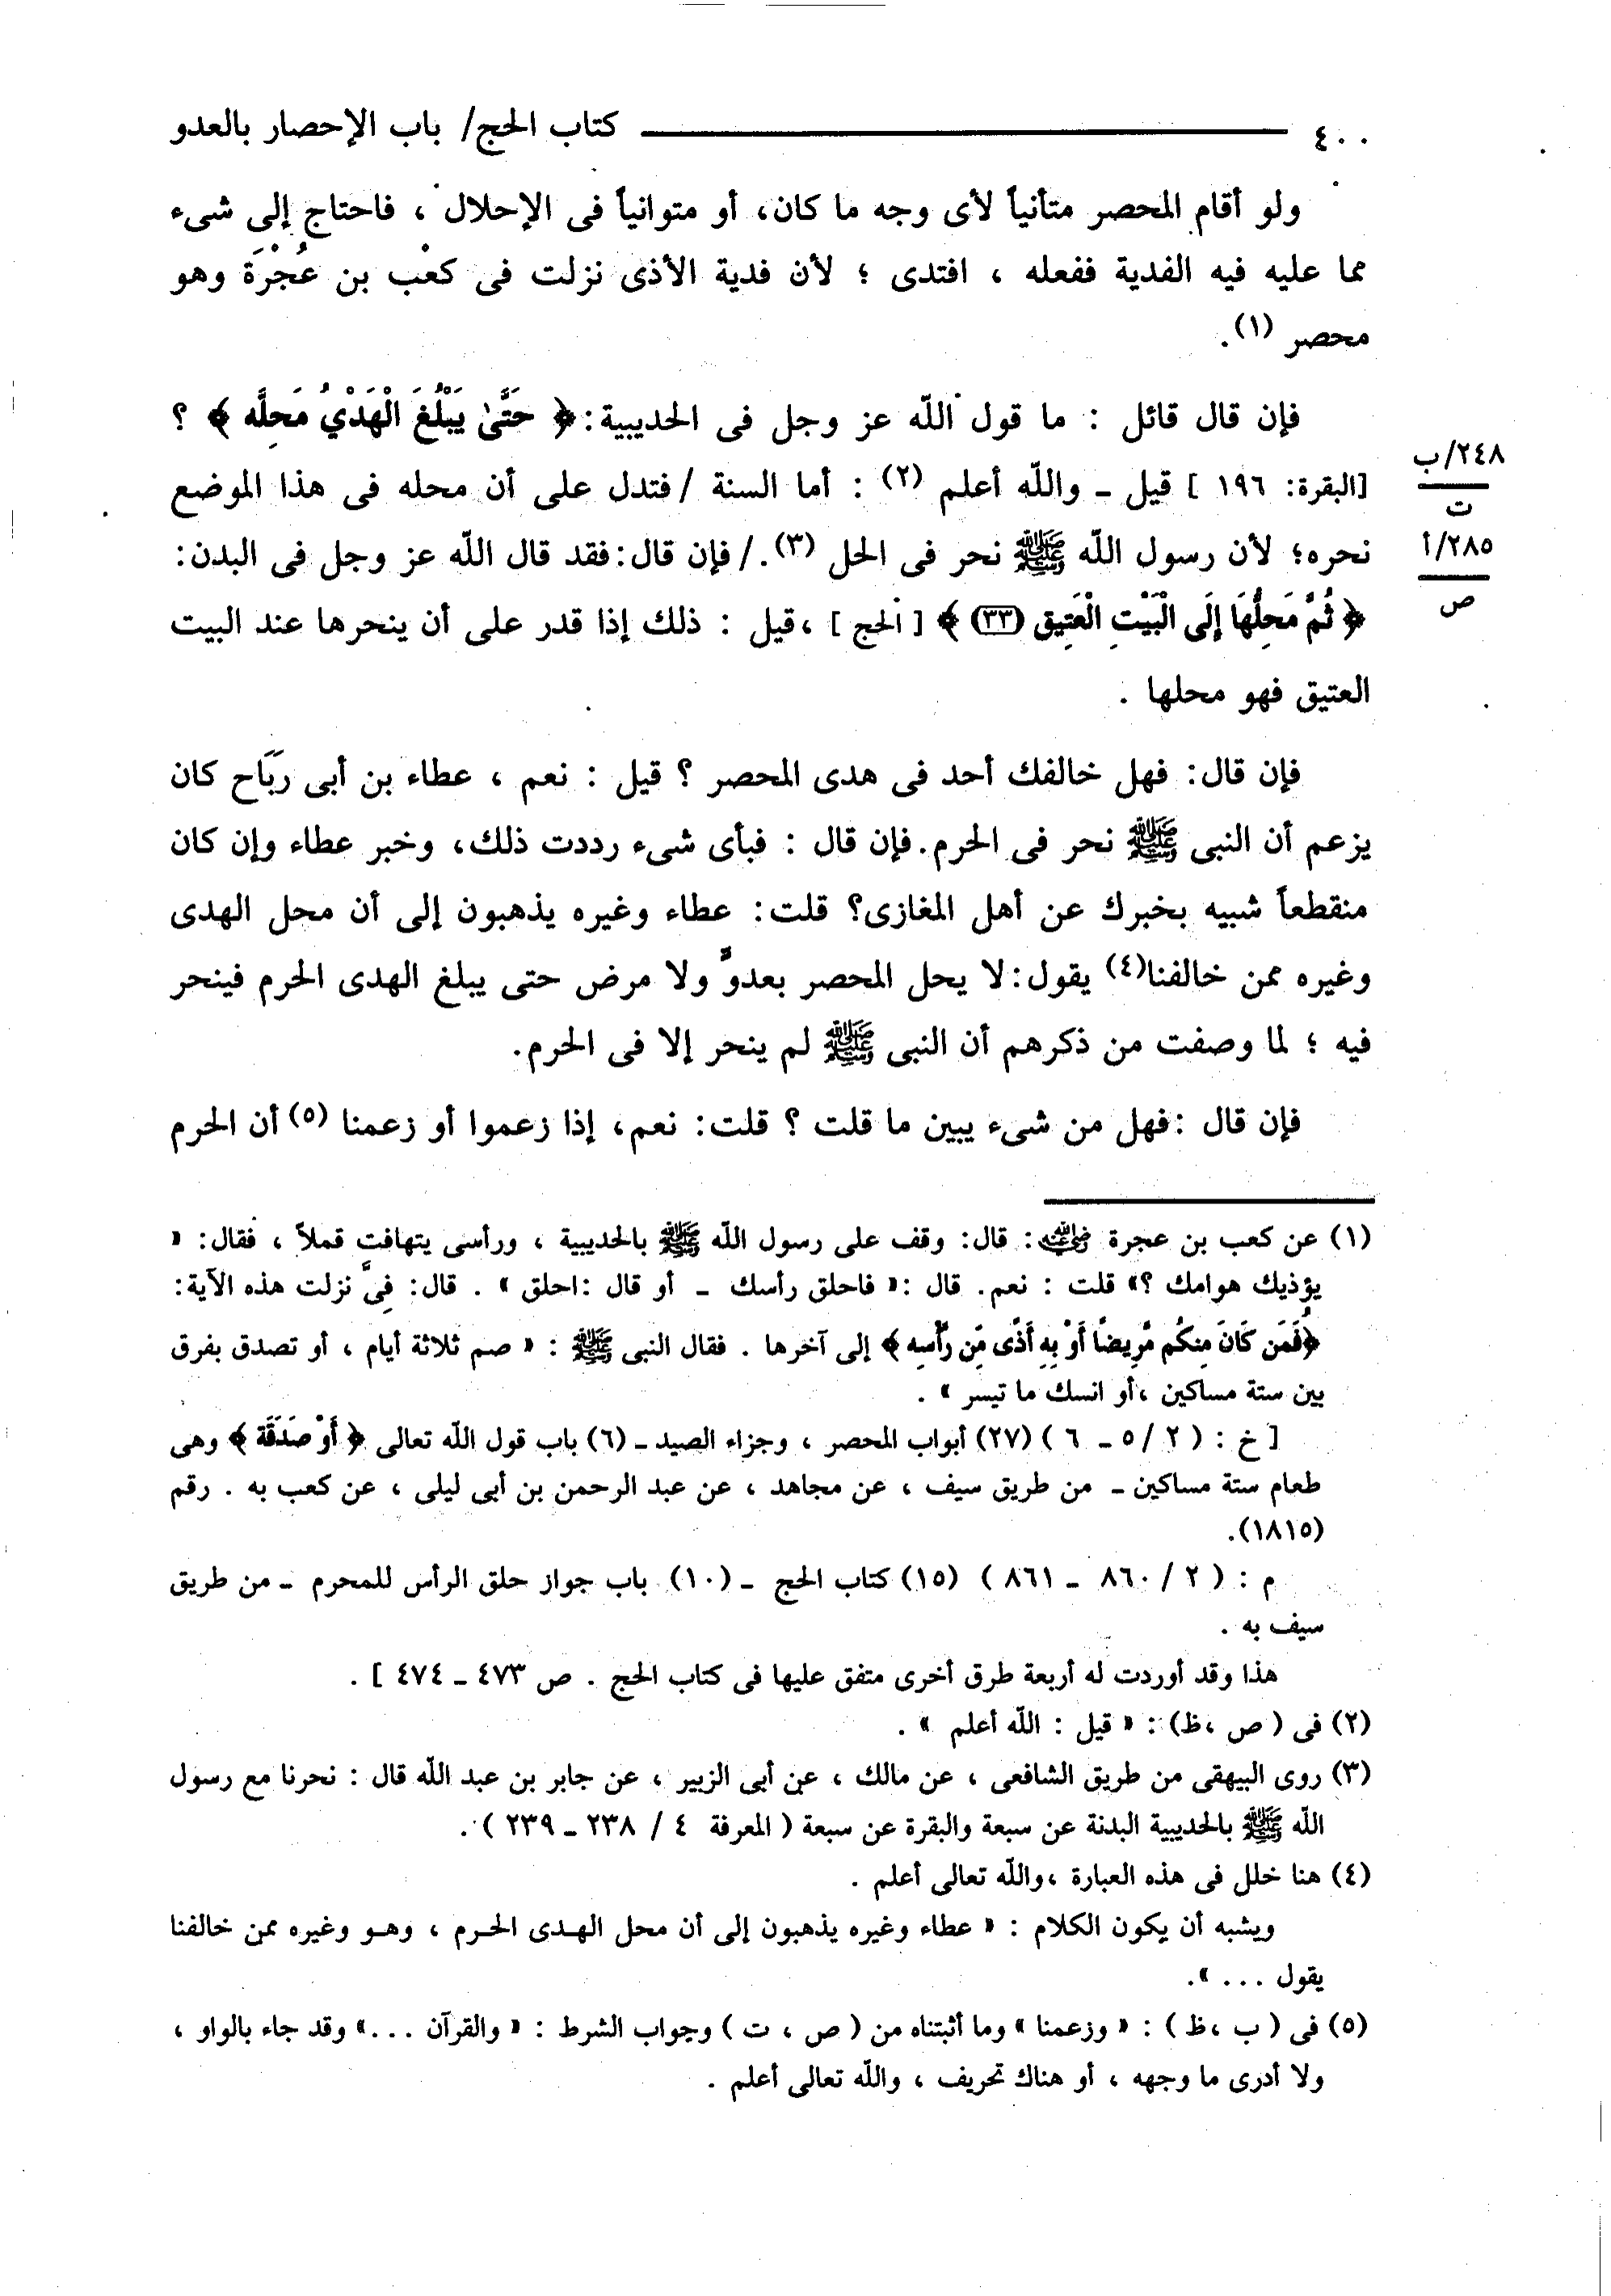 ٤٠٠ كتاب الحج/ باب الإحصار بالعدو
ولو أقام المحصر متأنياً لأى وجه ما كان، أو متوانياً فى الإحلال ، فاحتاج إلى شىء
مما عليه فيه الفدية ففعله ، افتدى ؛ لأن فدية الأذى نزلت فى كعْب بن عُجْرَة وهو
محصر (١).
فإن قال قائل : ما قول الله عز وجل فى الحديبية: ﴿ حَتَّىٰ يَبْلُغَ الْهَدْيُ مَحِلَّه ﴾ ؟
[البقرة: ١٩٦ ] قيل ـ والله أعلم (٢) : أما السنة / فتدل على أن محله فى هذا الموضع
نحره؛ لأن رسول الله ﷺ نحر فى الحل (٣). / فإن قال: فقد قال الله عز وجل فى البدن:
﴿ ثُمَّ مَحِلُّهَا إِلَى الْبَيْتِ الْعَتِيقِ (٣٣) ﴾ [ الحج ] ، قيل : ذلك إذا قدر على أن ينحرها عند البيت
العتيق فهو محلها .
٢٤٨/ب
ت
٢٨٥/أ
ص
فإن قال: فهل خالفك أحد فى هدى المحصر ؟ قيل : نعم ، عطاء بن أبى رَبَاح كان
يزعم أن النبى ﷺ نحر فى الحرم. فإن قال : فبأى شىء رددت ذلك، وخبر عطاء وإن كان
منقطعاً شبيه بخبرك عن أهل المغازى؟ قلت: عطاء وغيره يذهبون إلى أن محل الهدى
وغيره ممن خالفنا(٤) يقول: لا يحل المحصر بعدوٍّ ولا مرض حتى يبلغ الهدى الحرم فينحر
فيه ؛ لما وصفت من ذكرهم أن النبى ﷺ لم ينحر إلا فى الحرم.
فإن قال : فهل من شىء يبين ما قلت ؟ قلت: نعم، إذا زعموا أو زعمنا (٥) أن الحرم
(١) عن كعب بن عجرة رضي الله عنه : قال: وقف على رسول الله ﷺ بالحديبية ، ورأسى يتهافت قملاً ، فقال: «
يؤذيك هوامك ؟» قلت : نعم. قال :« فاحلق رأسك ـ أو قال :احلق » . قال: فِىَّ نزلت هذه الآية:
﴿فَمَن كَانَ مِنكُم مَّرِيضًا أَوْ بِهِ أَذًى مِّن رَّأْسِهِ ﴾ إلى آخرها . فقال النبى ﷺ : « صم ثلاثة أيام ، أو تصدق بفرق
بين ستة مساكين ،أو انسك ما تيسر » .
[ خ : ( ٢ /٥ ـ ٦ ) (٢٧) أبواب المحصر ، وجزاء الصيد ـ (٦) باب قول الله تعالى ﴿ أَوْ صَدَقَة ﴾ وهى
طعام ستة مساكين ـ من طريق سيف ، عن مجاهد ، عن عبد الرحمن بن أبى ليلى ، عن كعب به . رقم
(١٨١٥).
م : ( ٢ / ٨٦٠ ـ ٨٦١ ) (١٥) كتاب الحج ـ (١٠) باب جواز حلق الرأس للمحرم ـ من طريق
سيف به .
هذا وقد أوردت له أربعة طرق أخرى متفق عليها فى كتاب الحج . ص ٤٧٣ ـ ٤٧٤ ] .
(٢) فى ( ص ،ظ) : « قيل : الله أعلم » .
(٣) روى البيهقى من طريق الشافعى ، عن مالك ، عن أبى الزبير ، عن جابر بن عبد الله قال : نحرنا مع رسول
الله ﷺ بالحديبية البدنة عن سبعة والبقرة عن سبعة ( المعرفة ٤ / ٢٣٨ ـ ٢٣٩ ) .
(٤) هنا خلل فى هذه العبارة ،والله تعالى أعلم .
ويشبه أن يكون الكلام : « عطاء وغيره يذهبون إلى أن محل الهدى الحرم ، وهو وغيره ممن خالفنا
يقول ... ».
(٥) فى ( ب ،ظ ) : « وزعمنا » وما أثبتناه من ( ص ، ت ) وجواب الشرط : « والقرآن ...» وقد جاء بالواو ،
ولا أدرى ما وجهه ، أو هناك تحريف ، والله تعالى أعلم .